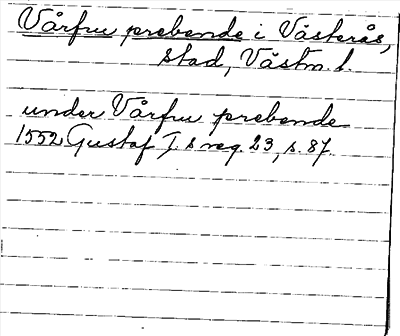 Vårfru prebende i Västerås,
stad, Västm. l.
under Vårfru prebende
1552 Gustaf I.s reg. 23, s. 87.